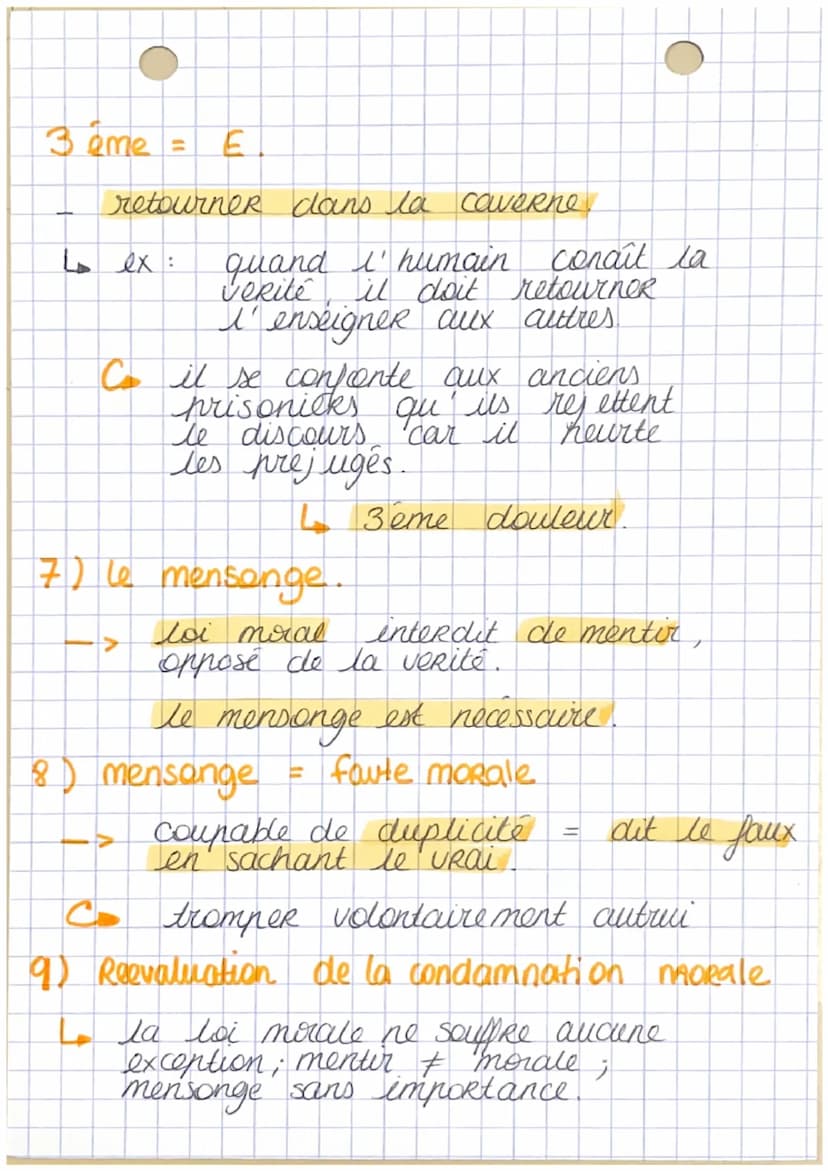 3 éme = E.
- retourner dans la caverne.
↳ ex : quand l'humain conaît la
verité, il doit retourner
l'enseigner aux autres.
↳ il se confronte aux anciens
prisoniers qu'ils rejettent
le discours car il heurte
les prejugés.
↳ 3éme douleur.
7) le mensonge.
--> loi moral interdit de mentir,
opposé de la verité.
le mensonge est necéssaire.
8) mensonge = faute morale
--> coupable de duplicité = dit le faux
en sachant le vrai.
↳ tromper volontairement autrui
9) Reevaluation de la condamnation morale
↳ la loi morale ne souffre aucune
exception ; mentir ≠ morale ;
mensonge sans importance.